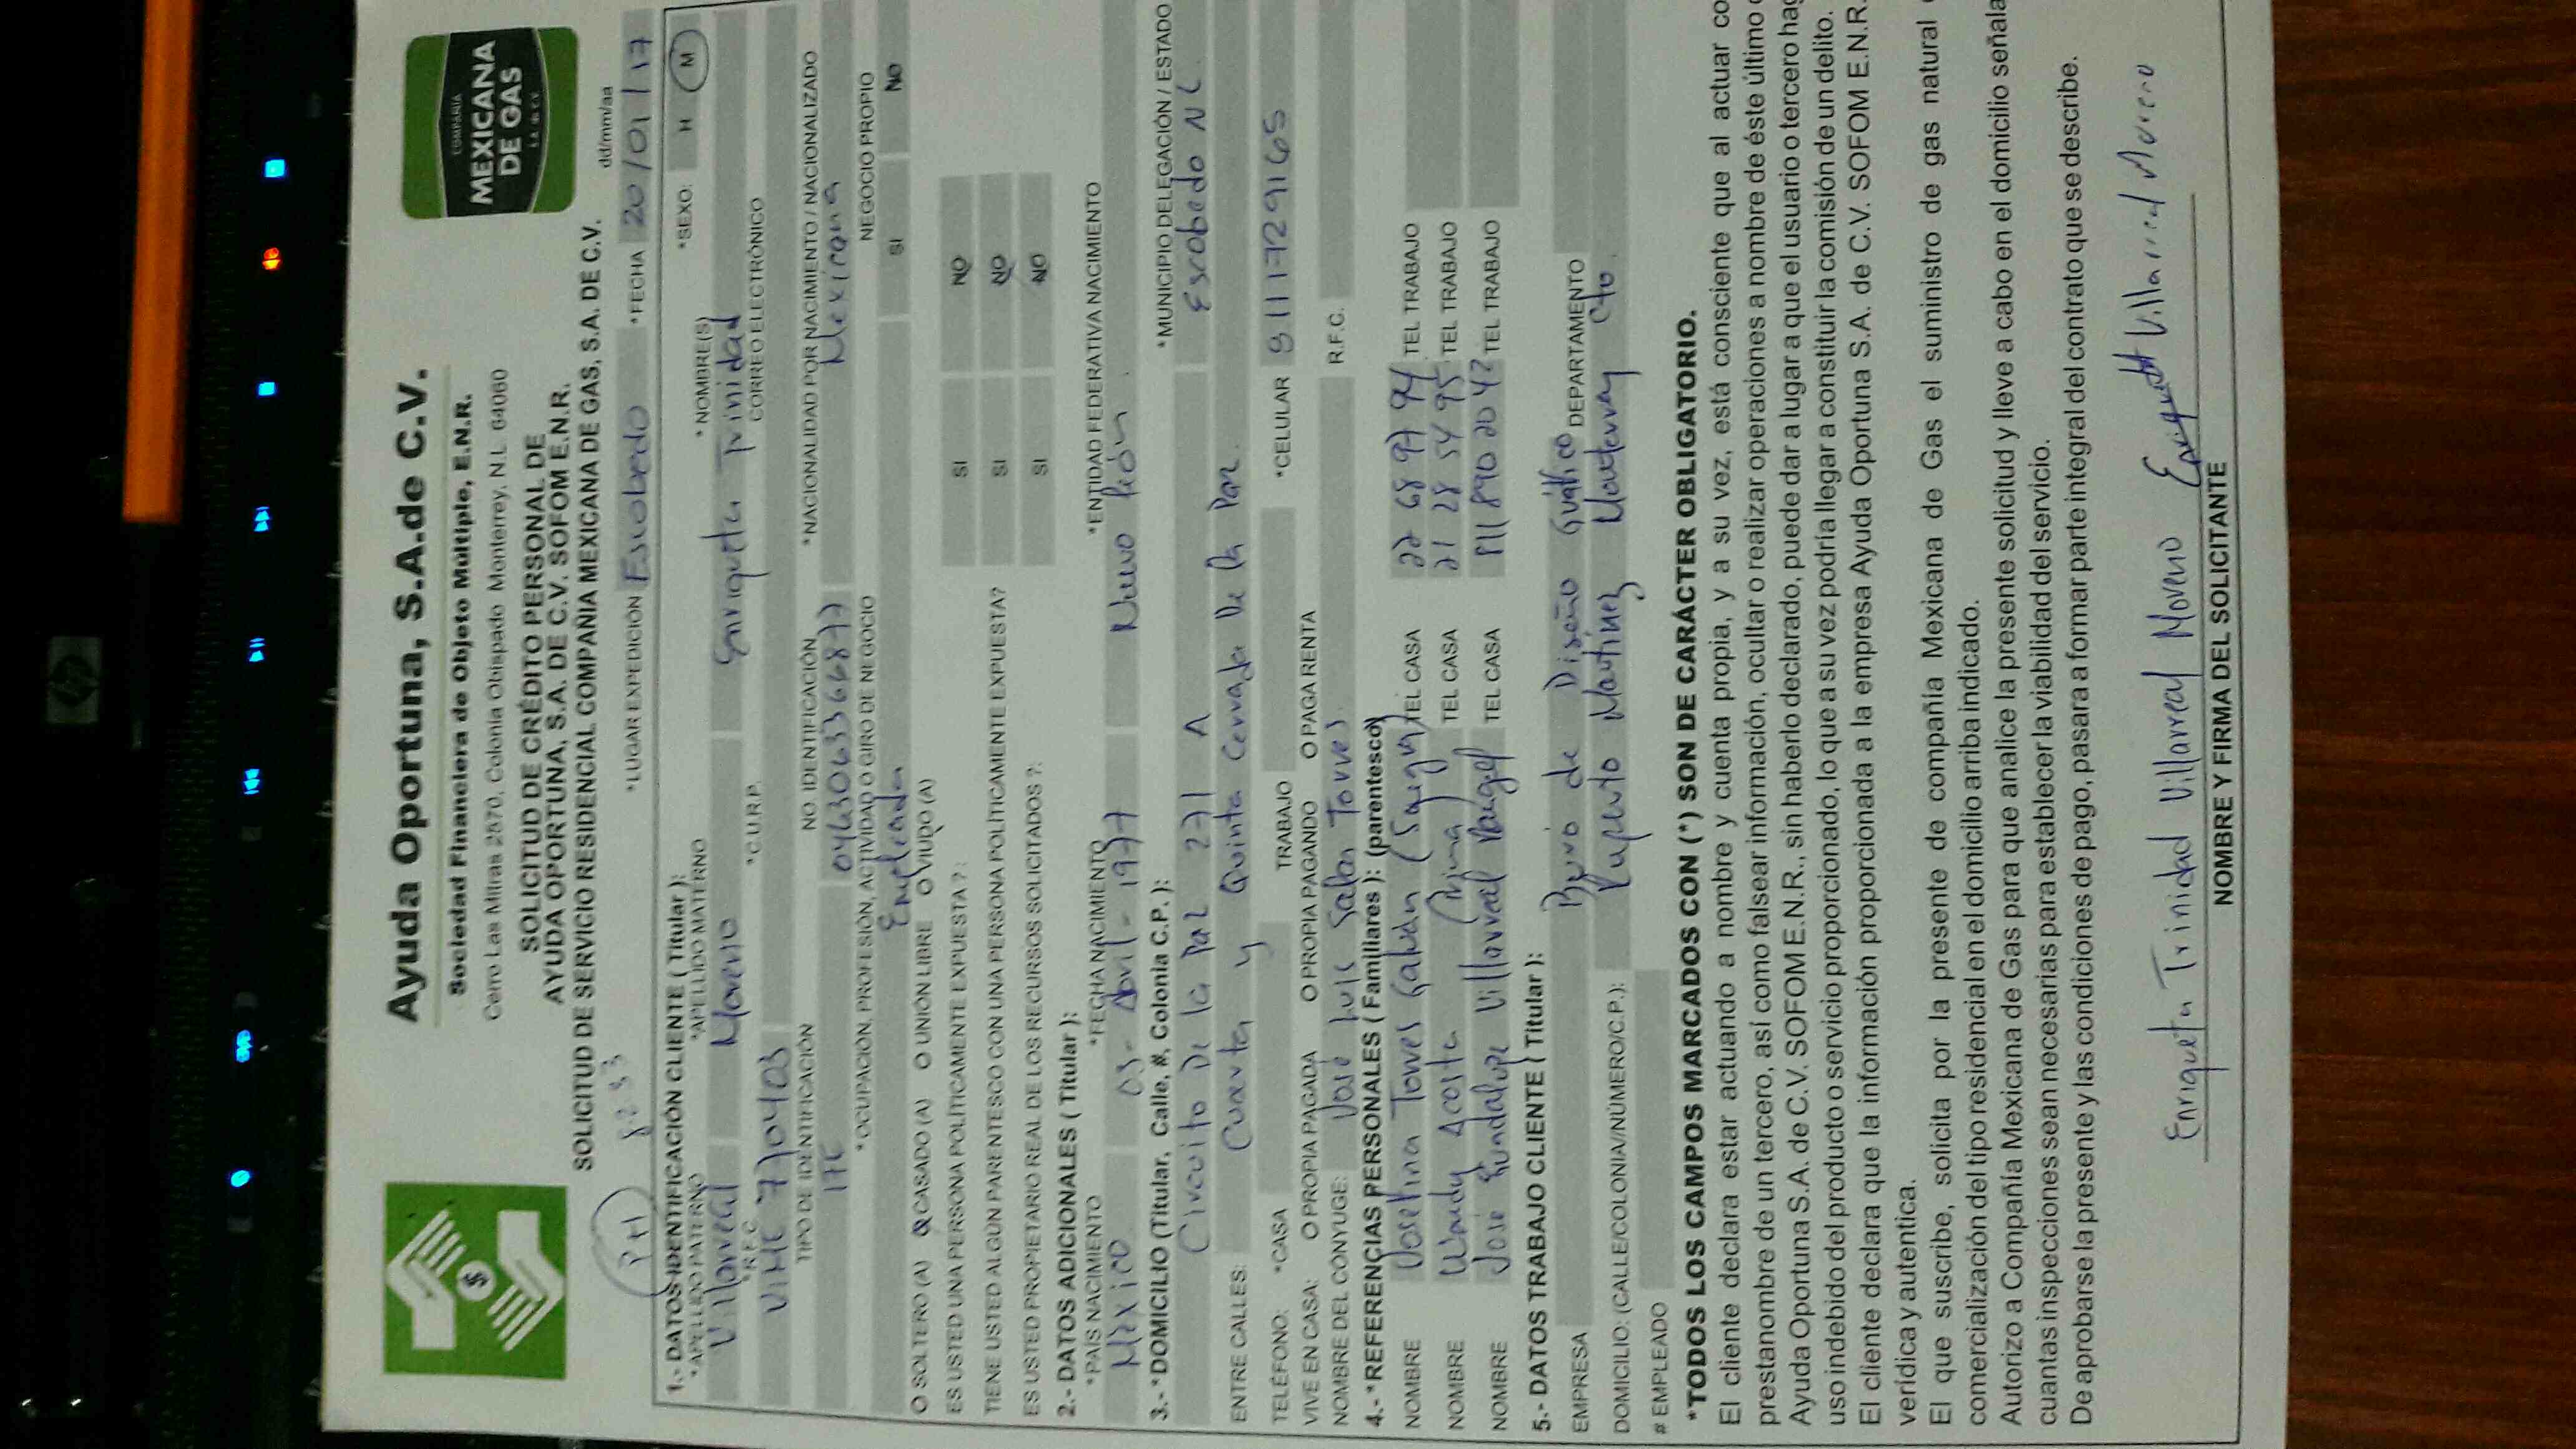 Ayuda Oportuna, S.A.de C.V.
Sociedad Financiera de Objeto Múltiple, E.N.R.
Cerro Las Mitras 2570, Colonia Obispado Monterrey, N.L. 64060
SOLICITUD DE CRÉDITO PERSONAL DE
AYUDA OPORTUNA, S.A. DE C.V. SOFOM E.N.R.
SOLICITUD DE SERVICIO RESIDENCIAL COMPAÑÍA MEXICANA DE GAS, S.A. DE C.V.
COMPAÑÍA
MEXICANA
DE GAS
S.A. DE C.V.
$
PH
dd/mm/aa
*LUGAR EXPEDICION Escobedo *FECHA 20/01/17
1.- DATOS IDENTIFICACIÓN CLIENTE ( Titular ):
*APELLIDO PATERNO *APELLIDO MATERNO *NOMBRE(S) *SEXO: H M
Villarreal Moreno Enriqueta Trinidad
*R.F.C. *C.U.R.P. CORREO ELECTRÓNICO
VIME 770403
TIPO DE IDENTIFICACIÓN NO IDENTIFICACIÓN *NACIONALIDAD POR NACIMIENTO / NACIONALIZADO
IFE 0463063366877 Mexicana
*OCUPACIÓN, PROFESIÓN, ACTIVIDAD O GIRO DE NEGOCIO NEGOCIO PROPIO
Empleada SI NO
O SOLTERO (A) O CASADO (A) O UNIÓN LIBRE O VIUDO (A)
ES USTED UNA PERSONA POLÍTICAMENTE EXPUESTA ?: SI NO
TIENE USTED ALGÚN PARENTESCO CON UNA PERSONA POLÍTICAMENTE EXPUESTA? SI NO
ES USTED PROPIETARIO REAL DE LOS RECURSOS SOLICITADOS ?: SI NO
2.- DATOS ADICIONALES ( Titular ):
*PAÍS NACIMIENTO *FECHA NACIMIENTO *ENTIDAD FEDERATIVA NACIMIENTO
México 03 - Abril - 1977 Nuevo León
3.- *DOMICILIO (Titular, Calle, #, Colonia C.P. ): *MUNICIPIO DELEGACIÓN / ESTADO
Circuito De la Paz 271 A Escobedo NL.
ENTRE CALLES: Cuarta y Quinta Cerrada De la Paz.
TELÉFONO: *CASA TRABAJO *CELULAR 8111729165
VIVE EN CASA: O PROPIA PAGADA O PROPIA PAGANDO O PAGA RENTA
NOMBRE DEL CONYUGE: José Luis Salas Torres R.F.C.
4.- *REFERENCIAS PERSONALES ( Familiares ): (parentesco)
NOMBRE Josefina Torres Galván (Suegra) TEL CASA 22 68 97 94 TEL TRABAJO
NOMBRE Wendy Acosta Prima TEL CASA 21 28 54 95 TEL TRABAJO
NOMBRE José Guadalupe Villarreal TEL CASA 811 890 20 42 TEL TRABAJO
5.- DATOS TRABAJO CLIENTE ( Titular ):
EMPRESA Buró de Diseño Gráfico DEPARTAMENTO
DOMICILIO: (CALLE/COLONIA/NÚMERO/C.P.): Ruperto Martínez Monterrey Cto.
# EMPLEADO
*TODOS LOS CAMPOS MARCADOS CON (*) SON DE CARÁCTER OBLIGATORIO.
El cliente declara estar actuando a nombre y cuenta propia, y a su vez, está consciente que al actuar co
prestanombre de un tercero, así como falsear información, ocultar o realizar operaciones a nombre de éste último
Ayuda Oportuna S.A. de C.V. SOFOM E.N.R., sin haberlo declarado, puede dar a lugar a que el usuario o tercero hag
uso indebido del producto o servicio proporcionado, lo que a su vez podría llegar a constituir la comisión de un delito.
El cliente declara que la información proporcionada a la empresa Ayuda Oportuna S.A. de C.V. SOFOM E.N.R.
verídica y autentica.
El que suscribe, solicita por la presente de compañía Mexicana de Gas el suministro de gas natural
comercialización del tipo residencial en el domicilio arriba indicado.
Autorizo a Compañía Mexicana de Gas para que analice la presente solicitud y lleve a cabo en el domicilio señala
cuantas inspecciones sean necesarias para establecer la viabilidad del servicio.
De aprobarse la presente y las condiciones de pago, pasara a formar parte integral del contrato que se describe.
Enriqueta Trinidad Villarreal Moreno Enriqueta Villarreal Moreno
NOMBRE Y FIRMA DEL SOLICITANTE